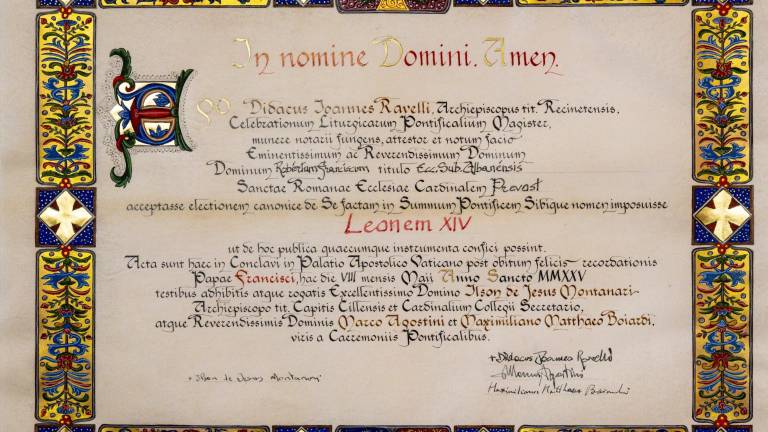 In nomine Domini. Amen.
EGO Didacus Ioannes Ravelli, Archiepiscopus tit. Recinetensis,
Celebrationum Liturgicarum Pontificalium Magister,
munere notarii fungens, attestor et notum facio
Eminentissimum ac Reverendissimum Dominum
Dominum Robertum Franciscum titulo Ecc. Sub. Albanensis
Sanctae Romanae Ecclesiae Cardinalem Prevost
acceptasse electionem canonice de Se factam in Summum Pontificem Sibique nomen imposuisse
Leonem XIV
ut de hoc publica quaecumque instrumenta confici possint.
Acta sunt haec in Conclavi in Palatio Apostolico Vaticano post obitum felicis recordationis
Papae Francisci, hac die VIII mensis Maii Anno Sancto MMXXV
testibus adhibitis atque rogatis Excellentissimo Domino Ilson de Jesus Montanari
Archiepiscopo tit. Capitis Cillensis et Cardinalium Collegii Secretario,
atque Reverendissimis Dominis Marco Agostini et Maximiliano Matthaeo Boiardi,
viris a Caeremoniis Pontificalibus.
+ Didacus Joannes Ravelli
+ Ilson de Jesus Montanari
Marcus Agostini
Maximilianus Matthaeus Boiardi